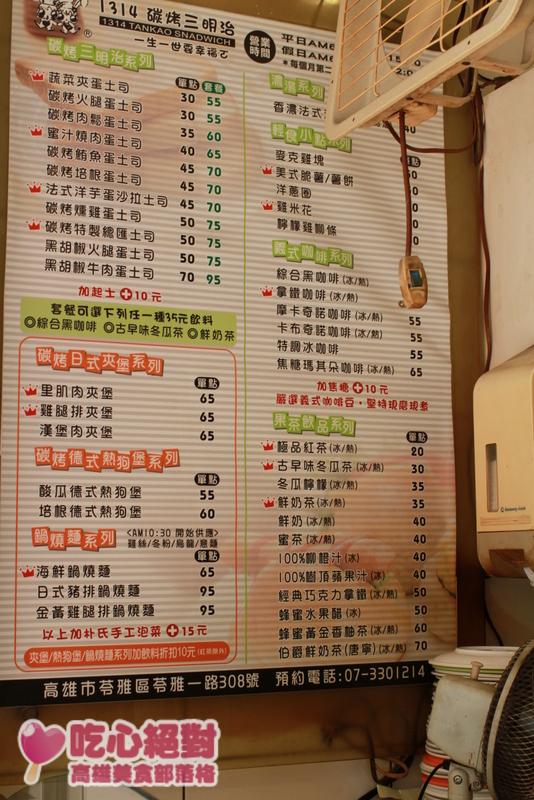 1314 碳烤三明治
1314 TANKAO SNADWICH
一生一世要幸福乙
營業時間
平日AM6
假日AM6
*每個月第二
碳烤三明治系列
單點 套餐
蔬菜夾蛋土司 30 55
碳烤火腿蛋土司 30 55
碳烤肉鬆蛋土司 35 60
蜜汁燒肉蛋土司 40 65
碳烤鮪魚蛋土司 45 70
碳烤培根蛋土司 45 70
法式洋芋蛋沙拉土司 45 70
碳烤燻雞蛋土司 50 75
碳烤特製總匯土司 50 75
黑胡椒火腿蛋土司 50 75
黑胡椒牛肉蛋土司 70 95
加起士+10元
套餐可選下列任一種35元飲料
◎綜合黑咖啡 ◎古早味冬瓜茶 ◎鮮奶茶
碳烤日式夾堡系列
單點
里肌肉夾堡 65
雞腿排夾堡 65
漢堡肉夾堡 65
碳烤德式熱狗堡系列
單點
酸瓜德式熱狗堡 55
培根德式熱狗堡 60
鍋燒麵系列
<AM10:30 開始供應>
雞絲/冬粉/烏龍/意麵
單點
海鮮鍋燒麵 65
日式豬排鍋燒麵 95
金黃雞腿排鍋燒麵 95
以上加朴氏手工泡菜+15元
夾堡/熱狗堡/鍋燒麵系列加飲料折扣10元(紅茶除外)
濃湯系列
香濃法式
40
輕食小點系列
麥克雞塊
美式脆薯/薯餅
洋蔥圈
雞米花
檸檬雞柳條
義式咖啡系列
綜合黑咖啡(冰/熱)
拿鐵咖啡(冰/熱)
摩卡奇諾咖啡(冰/熱) 55
卡布奇諾咖啡(冰/熱) 55
特調冰咖啡 55
焦糖瑪其朵咖啡(冰/熱) 65
加焦糖+10元
嚴選義式咖啡豆·堅持現磨現煮
果茶飲品系列
單點
極品紅茶(冰/熱) 20
古早味冬瓜茶(冰/熱) 30
冬瓜檸檬(冰/熱) 35
鮮奶茶(冰/熱) 35
鮮奶(冰/熱) 40
蜜茶(冰/熱) 40
100%柳橙汁(冰) 40
100%樹頂蘋果汁(冰) 40
經典巧克力拿鐵(冰/熱) 50
蜂蜜水果醋(冰) 50
蜂蜜黃金香柚茶(冰/熱) 60
伯爵鮮奶茶(唐寧)(冰/熱) 70
高雄市苓雅區苓雅一路308號 預約電話:07-3301214
吃心絕對
高雄美食部落格